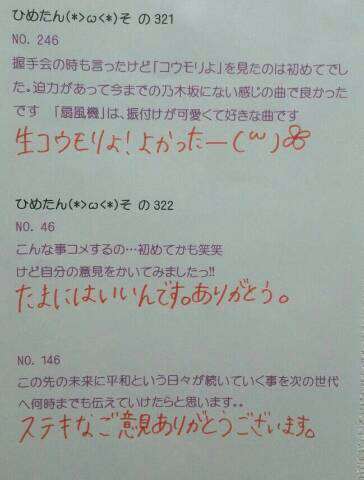 ひめたん(*>ω<*)そ の321
NO. 246
握手会の時も言ったけど「コウモリよ」を見たのは初めてでし
た。迫力があって今までの乃木坂にない感じの曲で良かった
です 「扇風機」は、振付けが可愛くて好きな曲です
生コウモリよ！よかったー(''')
ひめたん(*>ω<*)そ の322
NO. 46
こんな事コメするの…初めてかも笑笑
けど自分の意見をかいてみましたっ!!
たまにはいいんです。ありがとう。
NO. 146
この先の未来に平和という日々が続いていく事を次の世代
へ何時までも伝えていけたらと思います。。
ステキなご意見ありがとうございます。